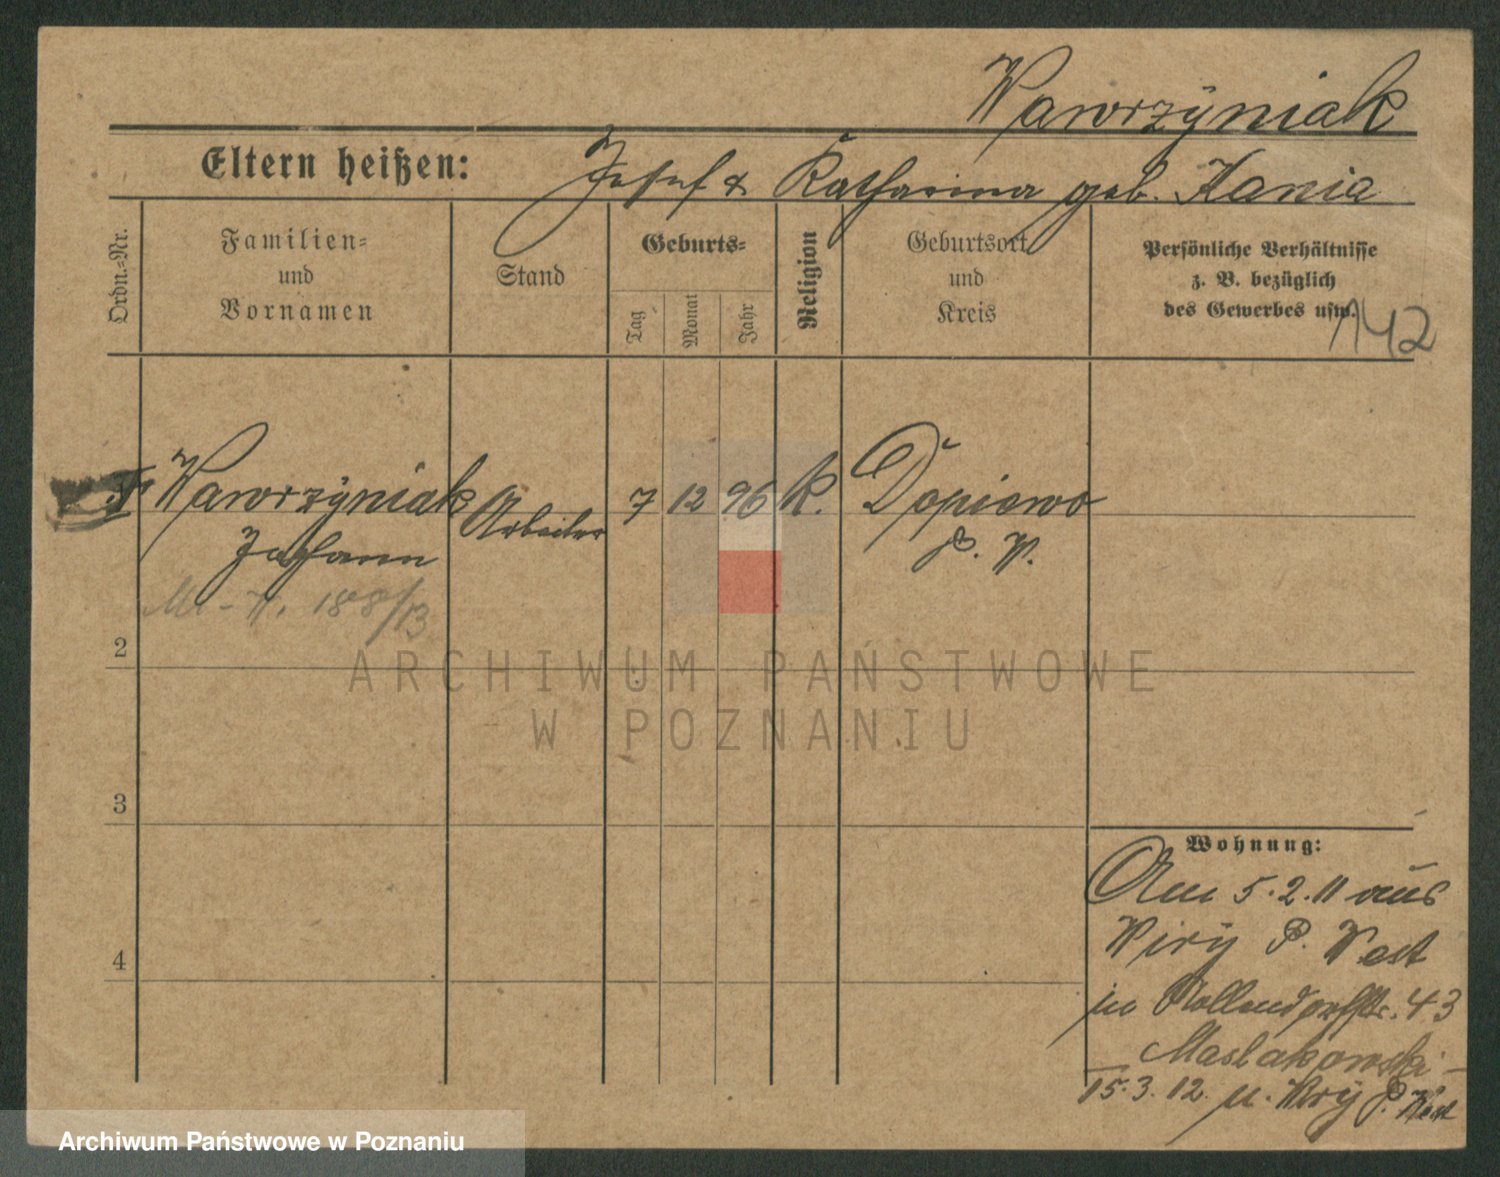 Wawrzyniak
Eltern heißen: Josef & Katharina geb. Kania
Ordn.-Nr.
Familien-
und
Vornamen
Stand
Geburts-
Tag
Monat
Jahr
Religion
Geburtsort
und
Kreis
Persönliche Verhältnisse
z. B. bezüglich
des Gewerbes usw.
142
Wawrzyniak Arbeiter 7 12 96 K. Dopiewo
Johann P. W.
188/13
2
3
4
Wohnung:
Am 5.2.11 aus
Wiry P. West
in Nollendorfstr. 43
Maslakowski
15.3.12. n. Wiry P. West
ARCHIWUM PAŃSTWOWE
W POZNANIU
Archiwum Państwowe w Poznaniu